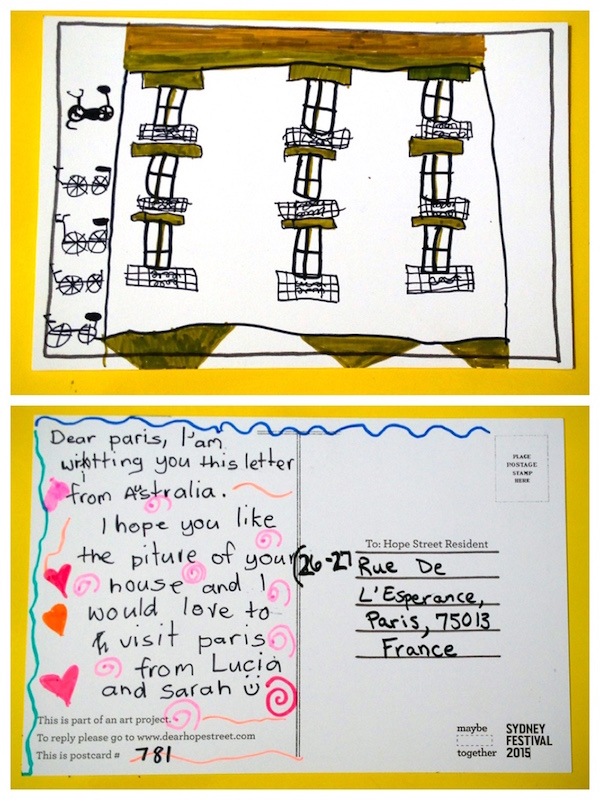 Dear paris, I am
writting you this letter
from Australia.
I hope you like
the piture of your
house and I
would love to
visit paris
from Lucia
and Sarah
This is part of an art project.
To reply please go to www.dearhopestreet.com
This is postcard # 781
PLACE
POSTAGE
STAMP
HERE
To: Hope Street Resident
26-27 Rue De
L'Esperance,
Paris, 75013
France
maybe
together
SYDNEY
FESTIVAL
2015